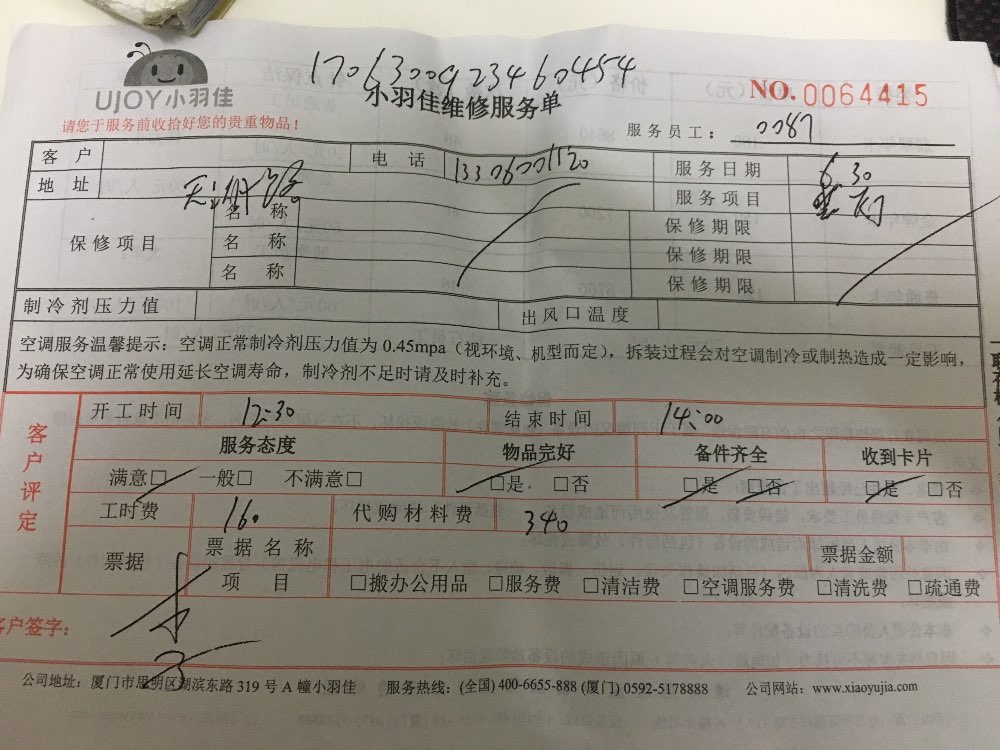 1706300923460454
UJOY小羽佳
小羽佳维修服务单
NO.0064415
请您于服务前收拾好您的贵重物品！
服务员工：0087
客 户 电 话 13306001120 服务日期 6.30
地 址 服务项目
保修项目 名 称 保修期限
名 称 保修期限
名 称 保修期限
制冷剂压力值 出风口温度
空调服务温馨提示：空调正常制冷剂压力值为 0.45mpa（视环境、机型而定），拆装过程会对空调制冷或制热造成一定影响，
为确保空调正常使用延长空调寿命，制冷剂不足时请及时补充。
客户评定
开工时间 12:30 结束时间 14:00
服务态度 物品完好 备件齐全 收到卡片
满意□ 一般□ 不满意□ □是 □否 □是 □否 □是 □否
工时费 160 代购材料费 340
票据 票据名称 票据金额
项 目 □搬办公用品 □服务费 □清洁费 □空调服务费 □清洗费 □疏通费
客户签字：
公司地址：厦门市思明区湖滨东路 319 号 A 幢小羽佳 服务热线：(全国) 400-6655-888 (厦门) 0592-5178888 公司网站：www.xiaoyujia.com